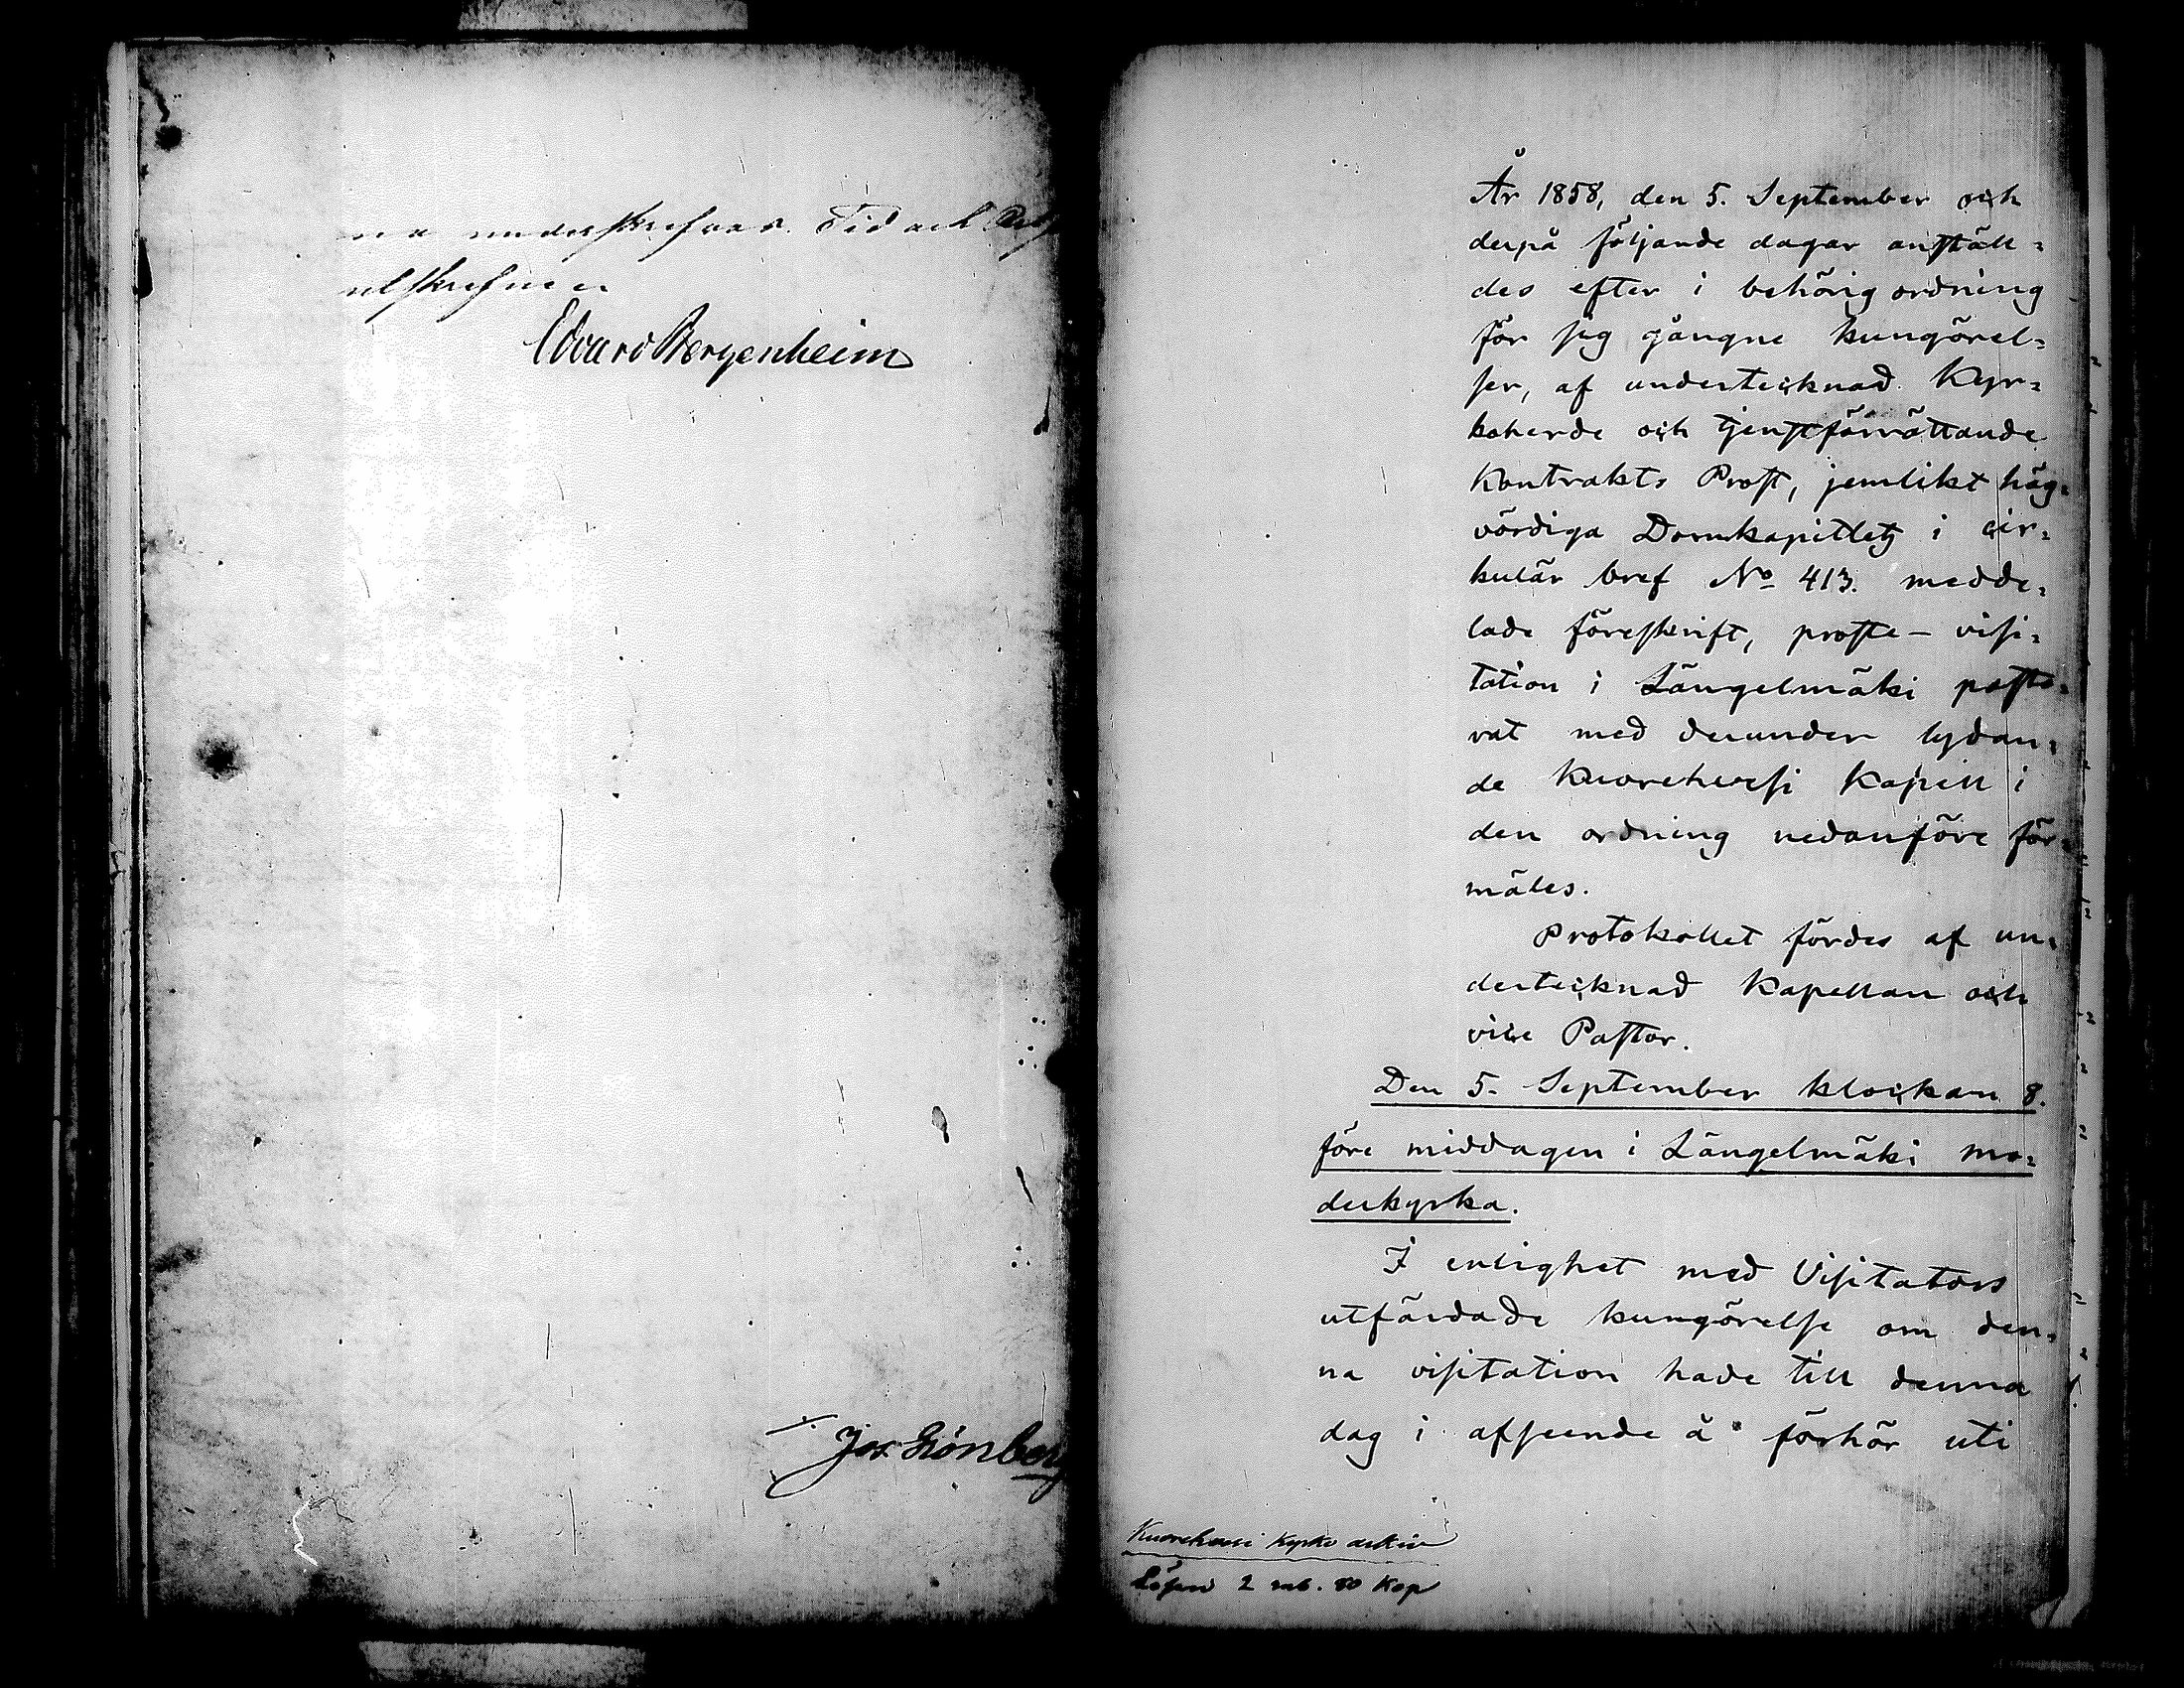 underskrefvas. Tid och
utskrefne
Edvard Bergenheim
Jos. Grönberg
År 1858, den 5. September och
derpå följande dagar anställ=
des efter i behörig ordning
för sig gångne kungörel=
ser, af undertecknad Kyr=
koherde och tjenstförrättande
Kontrakts Prost, jemlikt hög=
vördiga Domkapitlets i cir=
kulär bref No 413. medde=
lade föreskrift, proste-visi=
tation i Längelmäki pasto=
rat med derunder lydan=
de Kuorehvesi Kapell i
den ordning nedanföre för=
mäles.
Protokollet fördes af un=
dertecknad Kapellan och
vice Pastor.
Den 5. September klockan 8.
före middagen i Längelmäki mo=
derkyrka.
I enlighet med Visitators
utfärdade kungörelse om den=
na visitation hade till denna
dag i afseende å förhör uti
Kuorehvesi Kyrko arkiv
Lösen 2 rub. 80 Kop